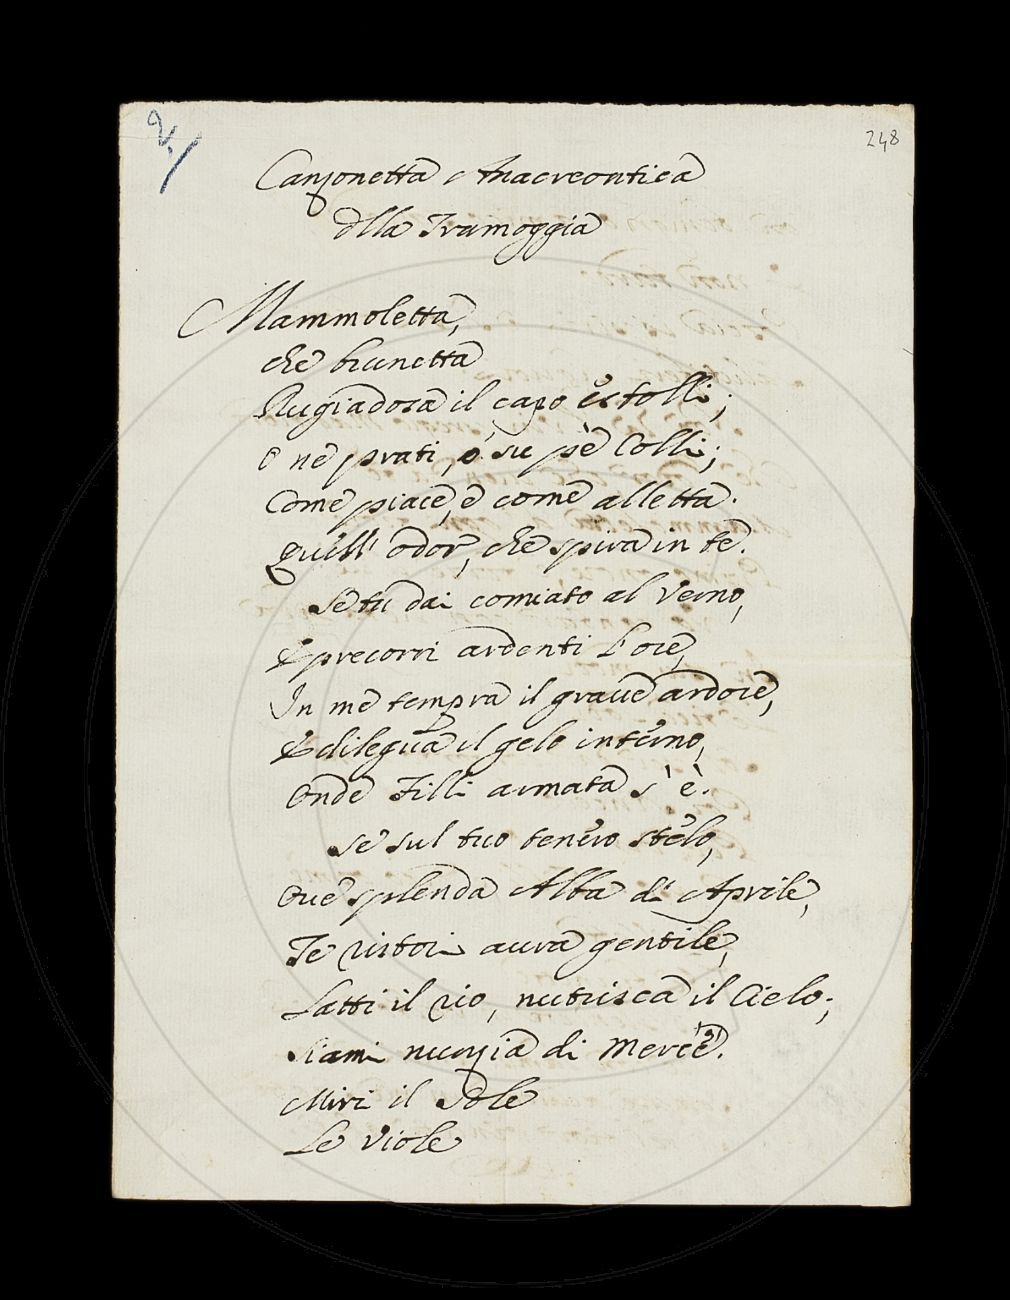 248
Canzonetta Anacreontica
dlla Tramoggia
Mammoletta,
che brunetta
Rugiadosa il capo estolli;
O ne prati, o su pè Colli;
Come piace, e come alletta.
Quell' odor, che spira in te.
Se tu dai comiato al Verno,
E precorri ardenti l'ore,
In me tempra il grave ardore,
E dilegua il gelo interno,
Onde Filli armata s'è.
Se sul tuo tenero stelo,
Ove splenda Alba di Aprile,
Te ristori aura gentile,
Latti il rio, nutrisca il Cielo;
Siami nunzia di Mercè.
Miri il Sole
Le Viole